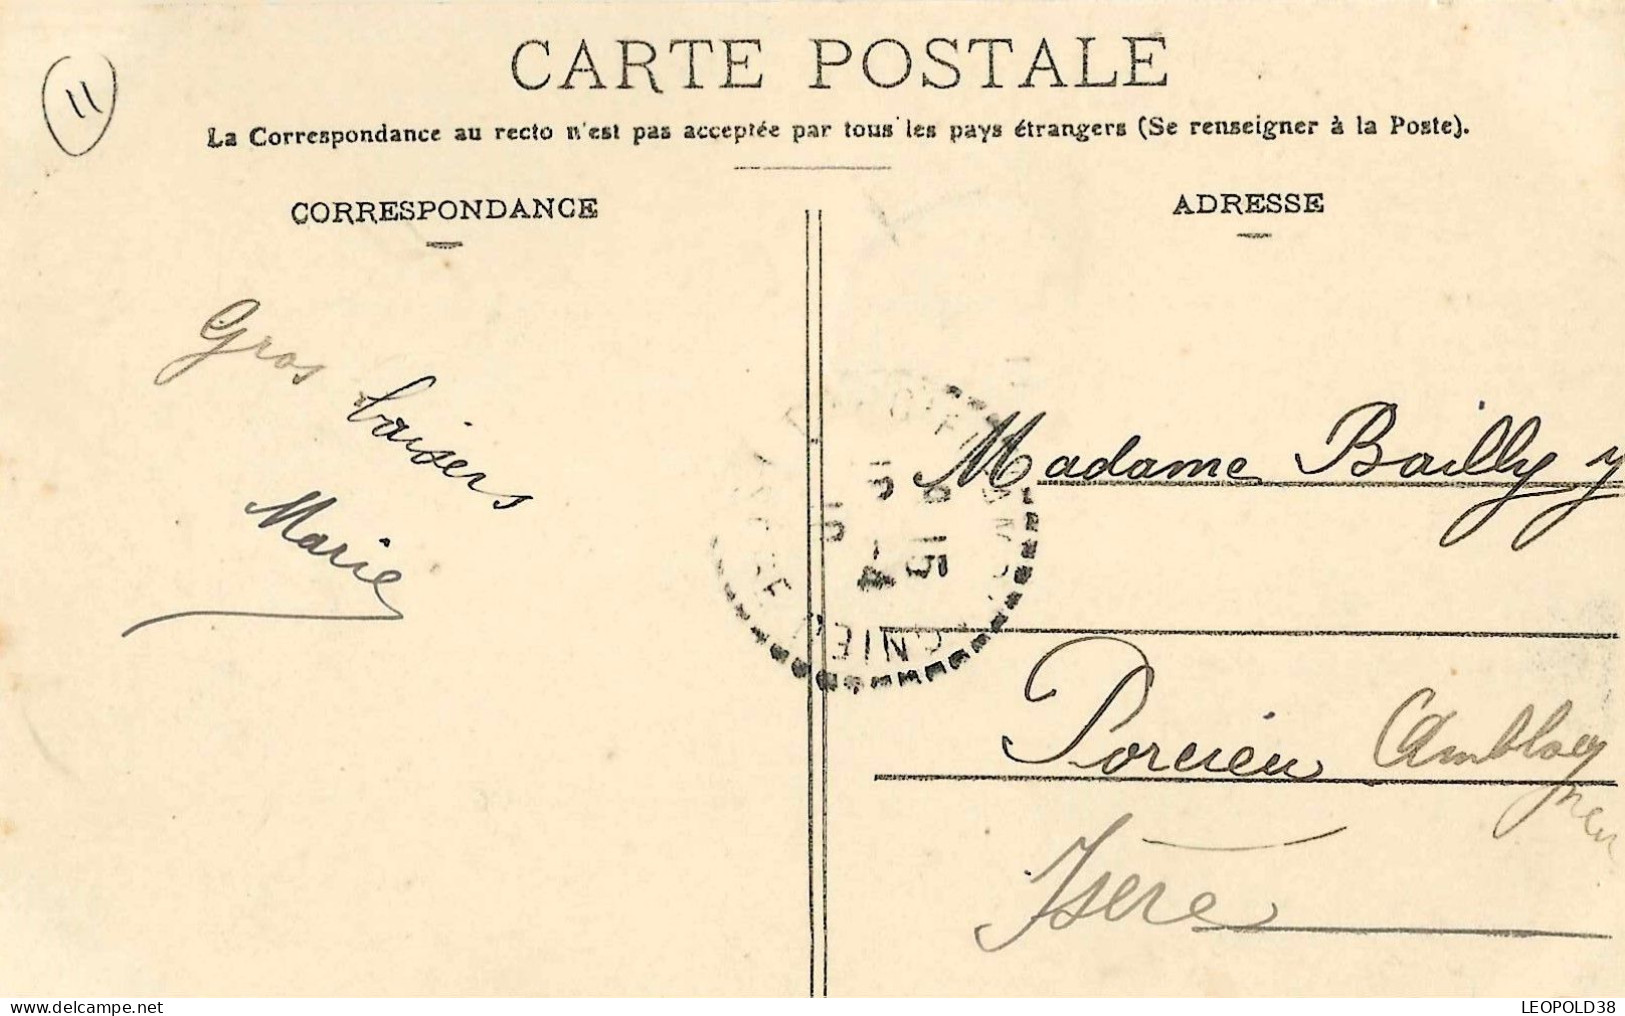 11
CARTE POSTALE
La Correspondance au recto n'est pas acceptée par tous les pays étrangers (Se renseigner à la Poste).
CORRESPONDANCE
Gros baisers
Marie
ADRESSE
Madame Bailly
Porcieu Amblagnieu
Isère
15 -4
10
LEOPOLD38